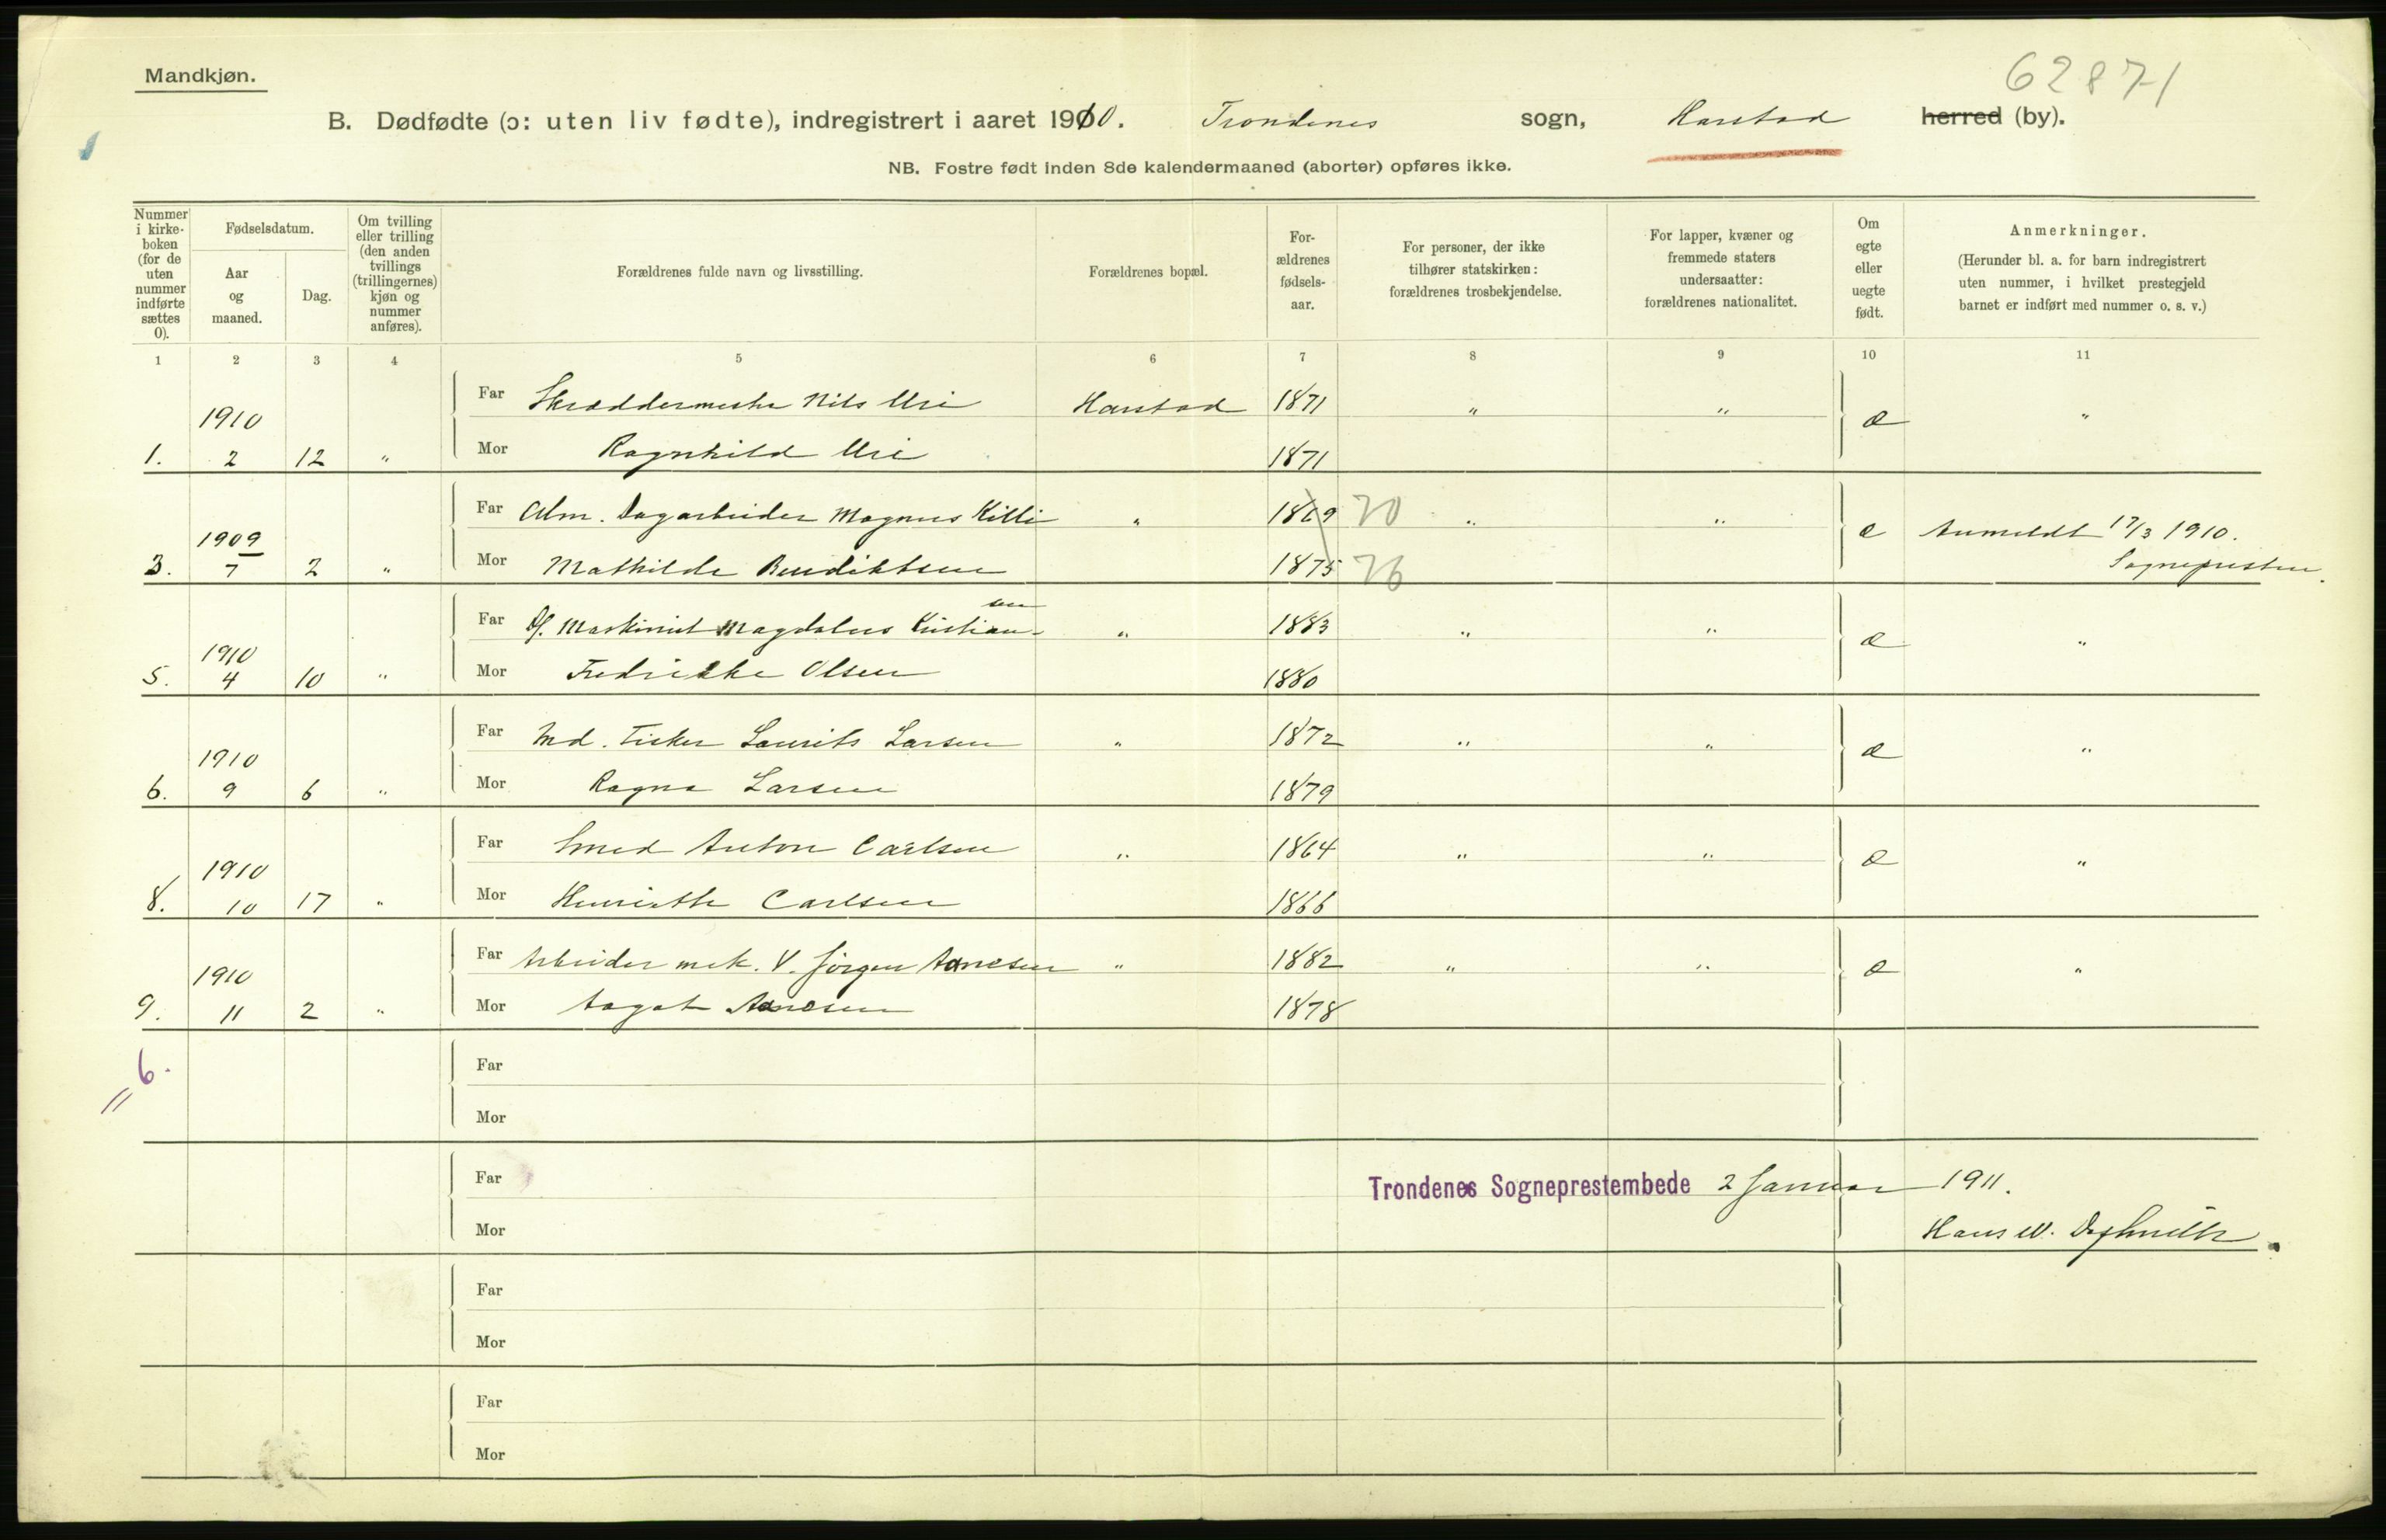 Mandkjøn.
62871
B. Dødfødte (ɔ: uten liv fødte), indregistrert i aaret 1910. Trondenes sogn, Harstad herred (by).
NB. Fostre født inden 8de kalendermaaned (aborter) opføres ikke.
Nummer i kirke-boken (for de uten nummer indførte sættes 0).
Fødselsdatum.
Aar og maaned.
Dag.
Om tvilling eller trilling (den anden tvillings (trillingernes) kjøn og nummer anføres).
Forældrenes fulde navn og livsstilling.
Forældrenes bopæl.
For-ældrenes fødsels-aar.
For personer, der ikke tilhører statskirken: forældrenes trosbekjendelse.
For lapper, kvæner og fremmede staters undersaatter: forældrenes nationalitet.
Om egte eller uegte født.
Anmerkninger.
(Herunder bl. a. for barn indregistrert uten nummer, i hvilket prestegjeld barnet er indført med nummer o. s. v.)
1 2 3 4 5 6 7 8 9 10 11
Far Skræddermester Nils Uri Harstad 1871 " " æ "
1910
1. 2 12 " Mor Ragnhild Uri 1871
Far Alm. Dagarbeider Magnus Killi " 1869 70 " " æ Anmeldt 17/3 1910.
1909
3. 7 2 " Mor Mathilde Bendiktsen 1875 76 Sognepresten.
sen
Far D/. Maskinist Magdalus Kristian- " 1883 " " æ "
1910
5. 4 10 " Mor Fredrikke Olsen 1880
Far Md. Fisker Laurits Larsen " 1872 " " æ "
1910
6. 9 6 " Mor Ragna Larsen 1879
Far Smed Anton Carlsen " 1864 " " æ "
1910
8. 10 17 " Mor Henriette Carlsen 1866
Far Arbeider mek. V. Jörgen Aanesen " 1882 " " æ "
1910
9. 11 2 " Mor Aagot Aanesen 1878
= 6.
Far
Mor
Far
Trondenes Sogneprestembede 2 Januar 1911.
Mor
Hans
Far
Mor
Far
Mor